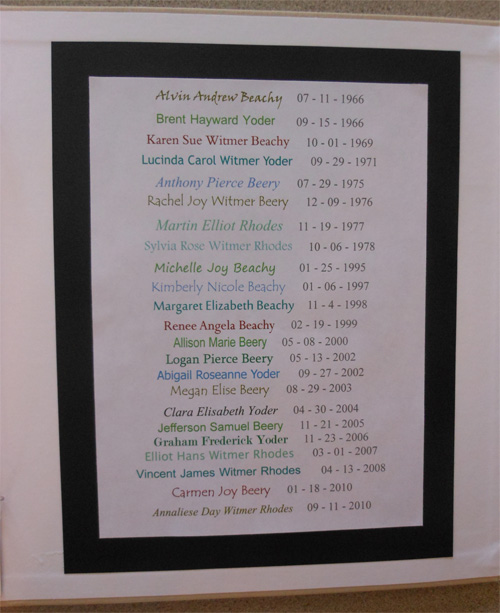 Alvin Andrew Beachy 07 - 11 - 1966
Brent Hayward Yoder 09 - 15 - 1966
Karen Sue Witmer Beachy 10 - 01 - 1969
Lucinda Carol Witmer Yoder 09 - 29 - 1971
Anthony Pierce Beery 07 - 29 - 1975
Rachel Joy Witmer Beery 12 - 09 - 1976
Martin Elliot Rhodes 11 - 19 - 1977
Sylvia Rose Witmer Rhodes 10 - 06 - 1978
Michelle Joy Beachy 01 - 25 - 1995
Kimberly Nicole Beachy 01 - 06 - 1997
Margaret Elizabeth Beachy 11 - 4 - 1998
Renee Angela Beachy 02 - 19 - 1999
Allison Marie Beery 05 - 08 - 2000
Logan Pierce Beery 05 - 13 - 2002
Abigail Roseanne Yoder 09 - 27 - 2002
Megan Elise Beery 08 - 29 - 2003
Clara Elisabeth Yoder 04 - 30 - 2004
Jefferson Samuel Beery 11 - 21 - 2005
Graham Frederick Yoder 11 - 23 - 2006
Elliot Hans Witmer Rhodes 03 - 01 - 2007
Vincent James Witmer Rhodes 04 - 13 - 2008
Carmen Joy Beery 01 - 18 - 2010
Annaliese Day Witmer Rhodes 09 - 11 - 2010